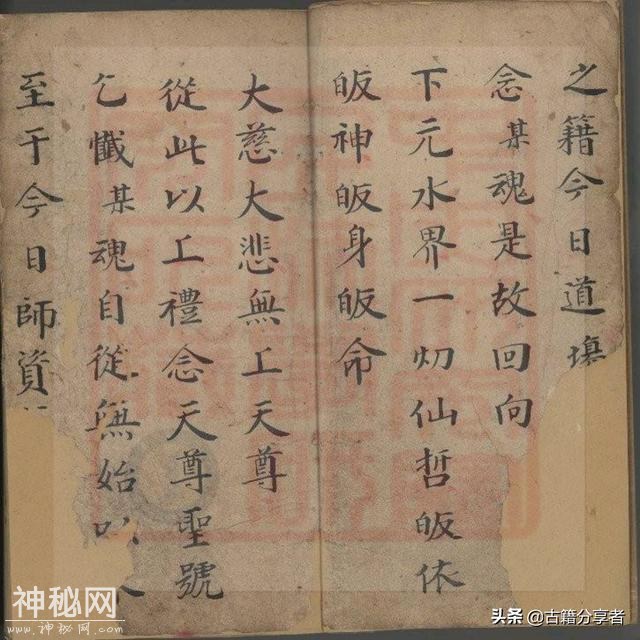 之籍今日道
念某魂是故回向
下元水界一切仙哲皈依
皈神皈身皈命
大慈大悲無工天尊
從此以工禮念天尊聖號
乞懺某魂自從無始以
至于今日師資
神秘网
www.神秘网.com
头条 @古籍分享者